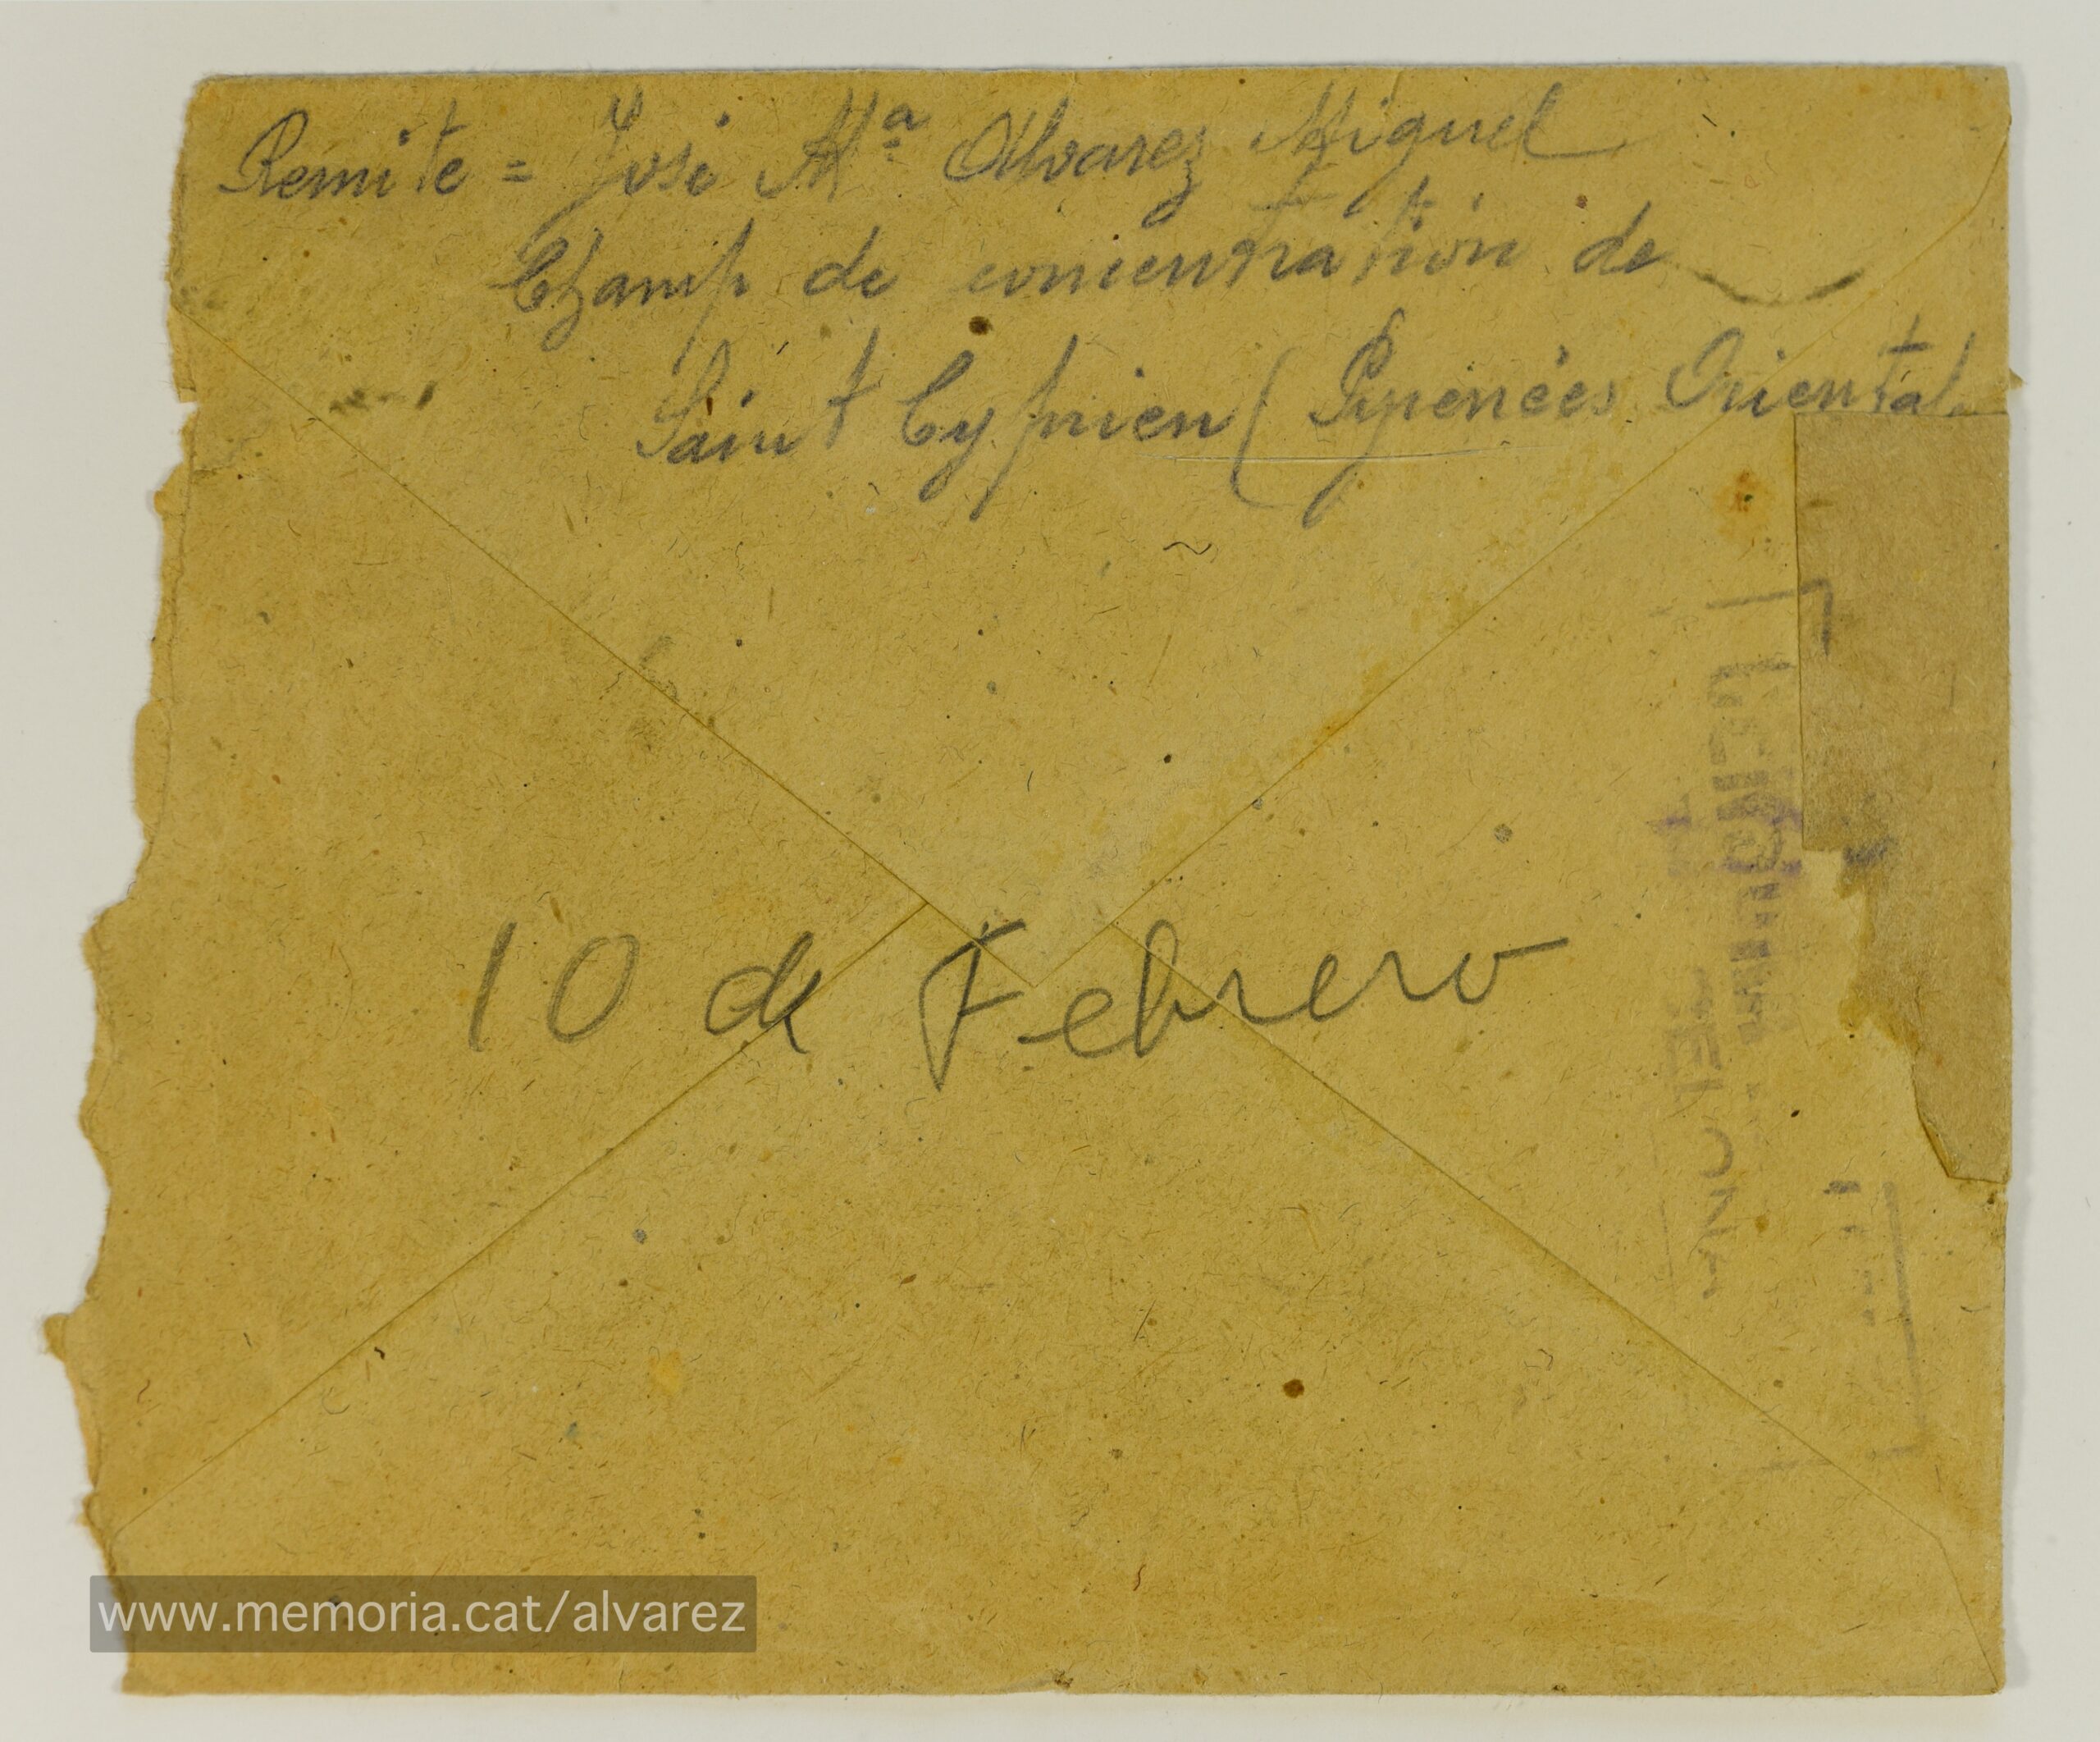 Remite = José Mª Álvarez Miguel
Champ de concentration de
Saint Cyprien (Pyrenées Oriental
10 de Febrero
www.memoria.cat/alvarez